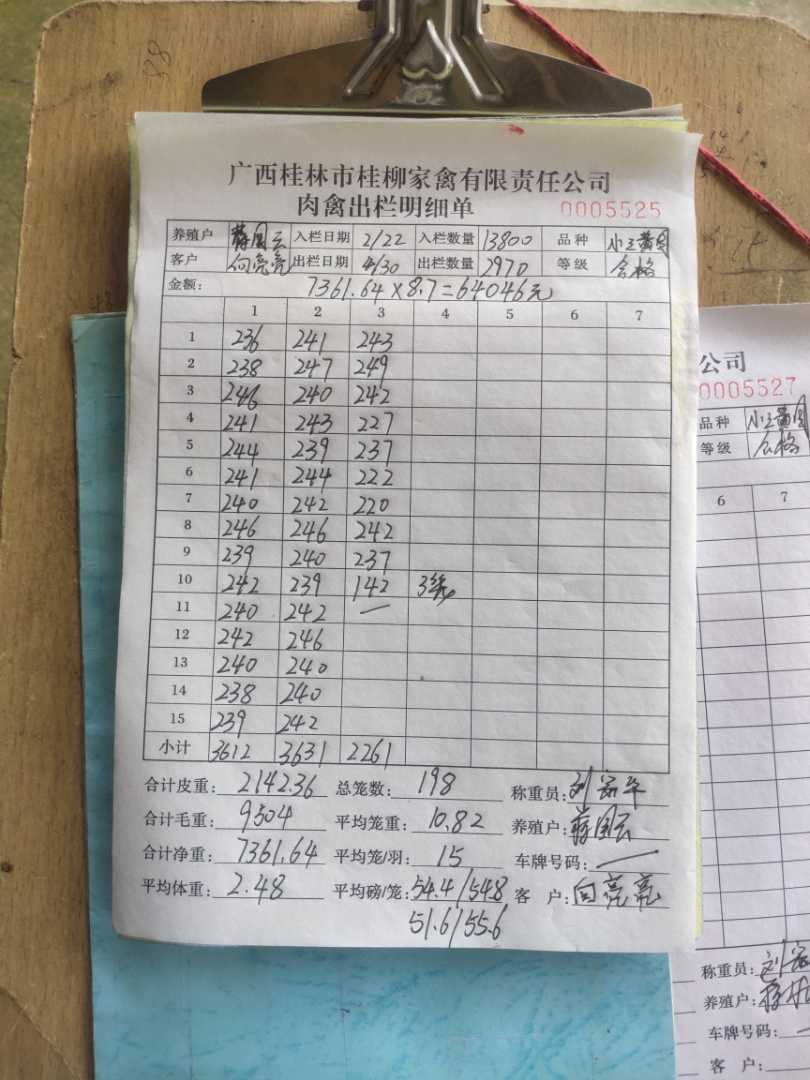 广西桂林市桂柳家禽有限责任公司
肉禽出栏明细单 0005525
养殖户 蒋国云 入栏日期 2/22 入栏数量 13800 品种 小三黄月
客户 向亮亮 出栏日期 4/30 出栏数量 2970 等级 合格
金额: 7361.64×8.7=64046元
1 2 3 4 5 6 7
1 236 241 243
2 238 247 249
3 246 240 242
4 241 243 227
5 244 239 237
6 241 244 222
7 240 242 220
8 246 246 242
9 239 240 237
10 242 239 142 3笼
11 240 242 —
12 242 246
13 240 240
14 238 240
15 239 242
小计 3612 3631 2261
合计皮重: 2142.36 总笼数: 198 称重员:
合计毛重: 9504 平均笼重: 10.82 养殖户: 蒋国云
合计净重: 7361.64 平均笼/羽: 15 车牌号码: —
平均体重: 2.48 平均磅/笼: 54.4/54.8 客 户: 向亮亮
51.6/55.6
公司
0005527
品种
等级 合格
6 7
称重员:
养殖户:
车牌号码: —
客 户: